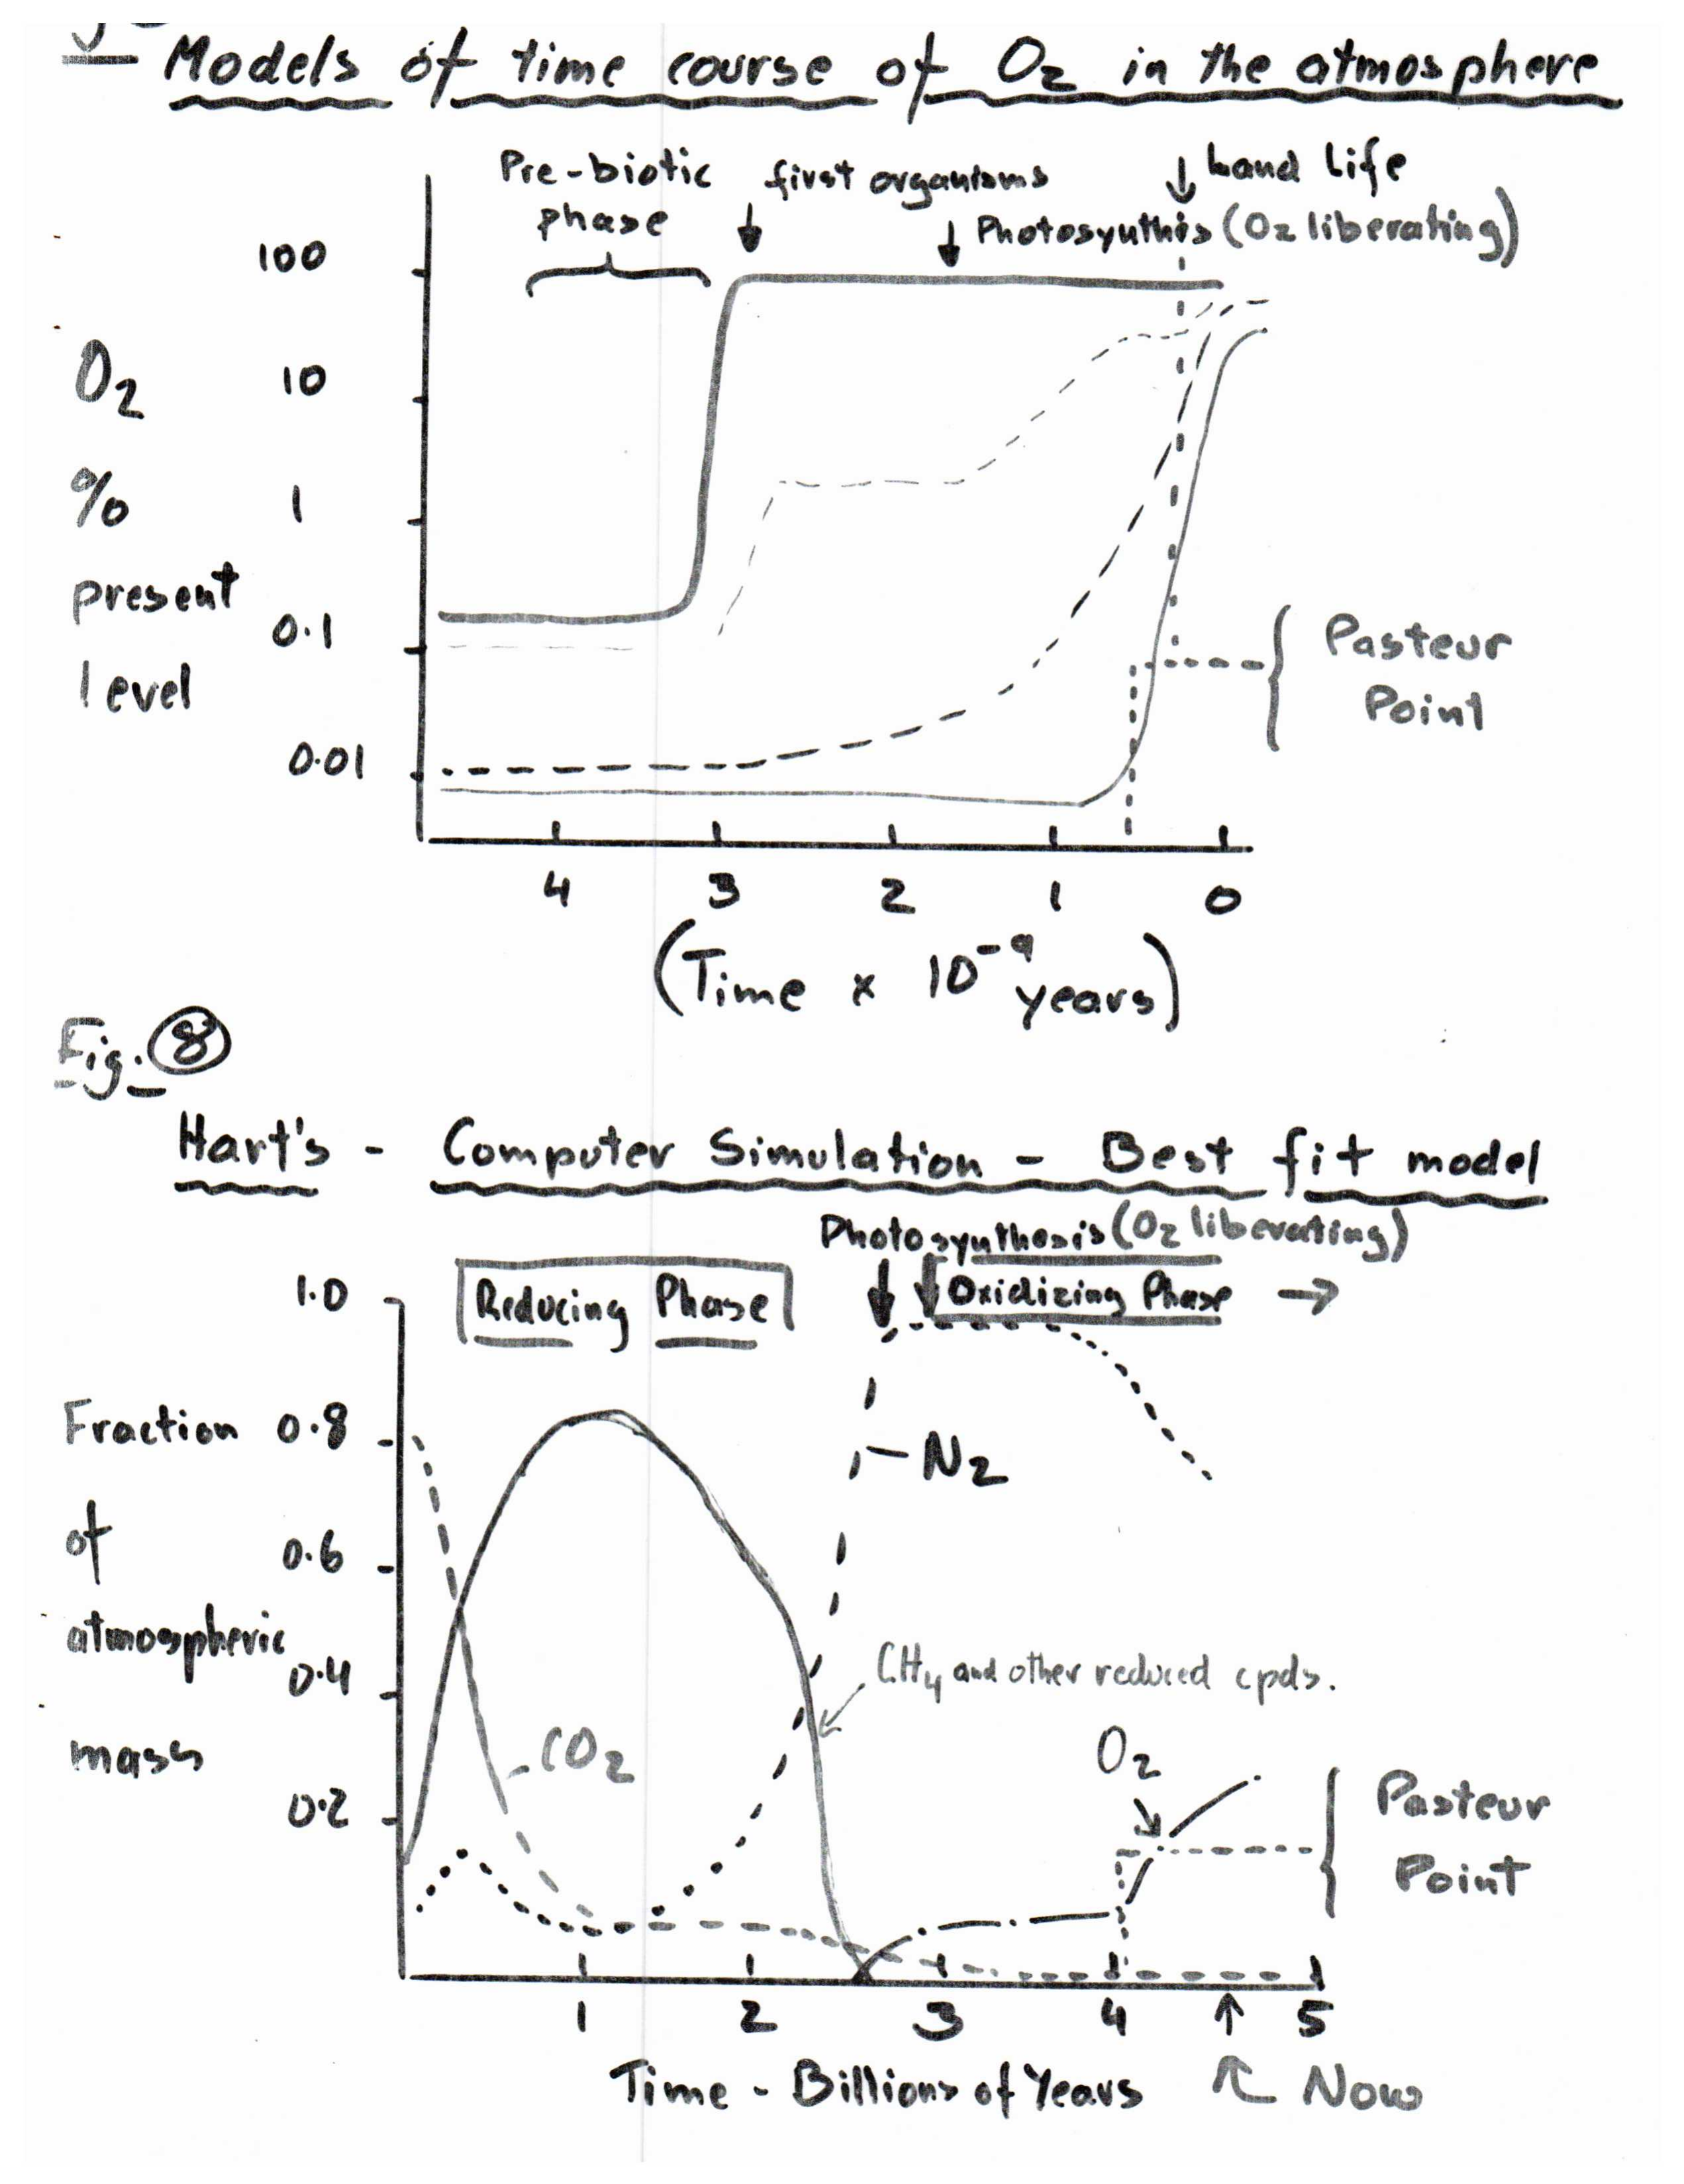 Models of time course of O2 in the atmosphere
Pre-biotic phase
first organisms
Land Life
Photosynthis (O2 liberating)
100
10
1
0.1
0.01
O2
%
present
level
Pasteur
Point
4 3 2 1 0
(Time x 10-9 years)
Fig. 8
Hart's - Computer Simulation - Best fit model
Photosynthesis (O2 liberating)
Reducing Phase
Oxidizing Phase →
1.0
0.8
0.6
0.4
0.2
Fraction
of
atmospheric
mass
N2
CH4 and other reduced cpds.
CO2
O2
Pasteur
Point
1 2 3 4 5
Time - Billions of Years
Now